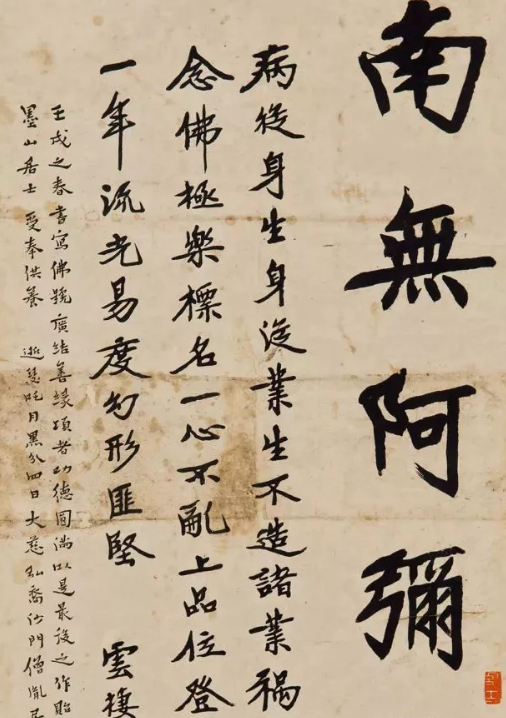 南無阿彌
病從身生身從業生不造諸業禍
念佛極樂標名一心不亂上品位登
一年流光易度幻形匪堅 雲棲
壬戌之春書寫佛號廣結善緣項者功德圓滿以是最後之作貽
墨山居士 受奉供養 逝慧吒月黑分四日大慈弘裔沙門僧胤